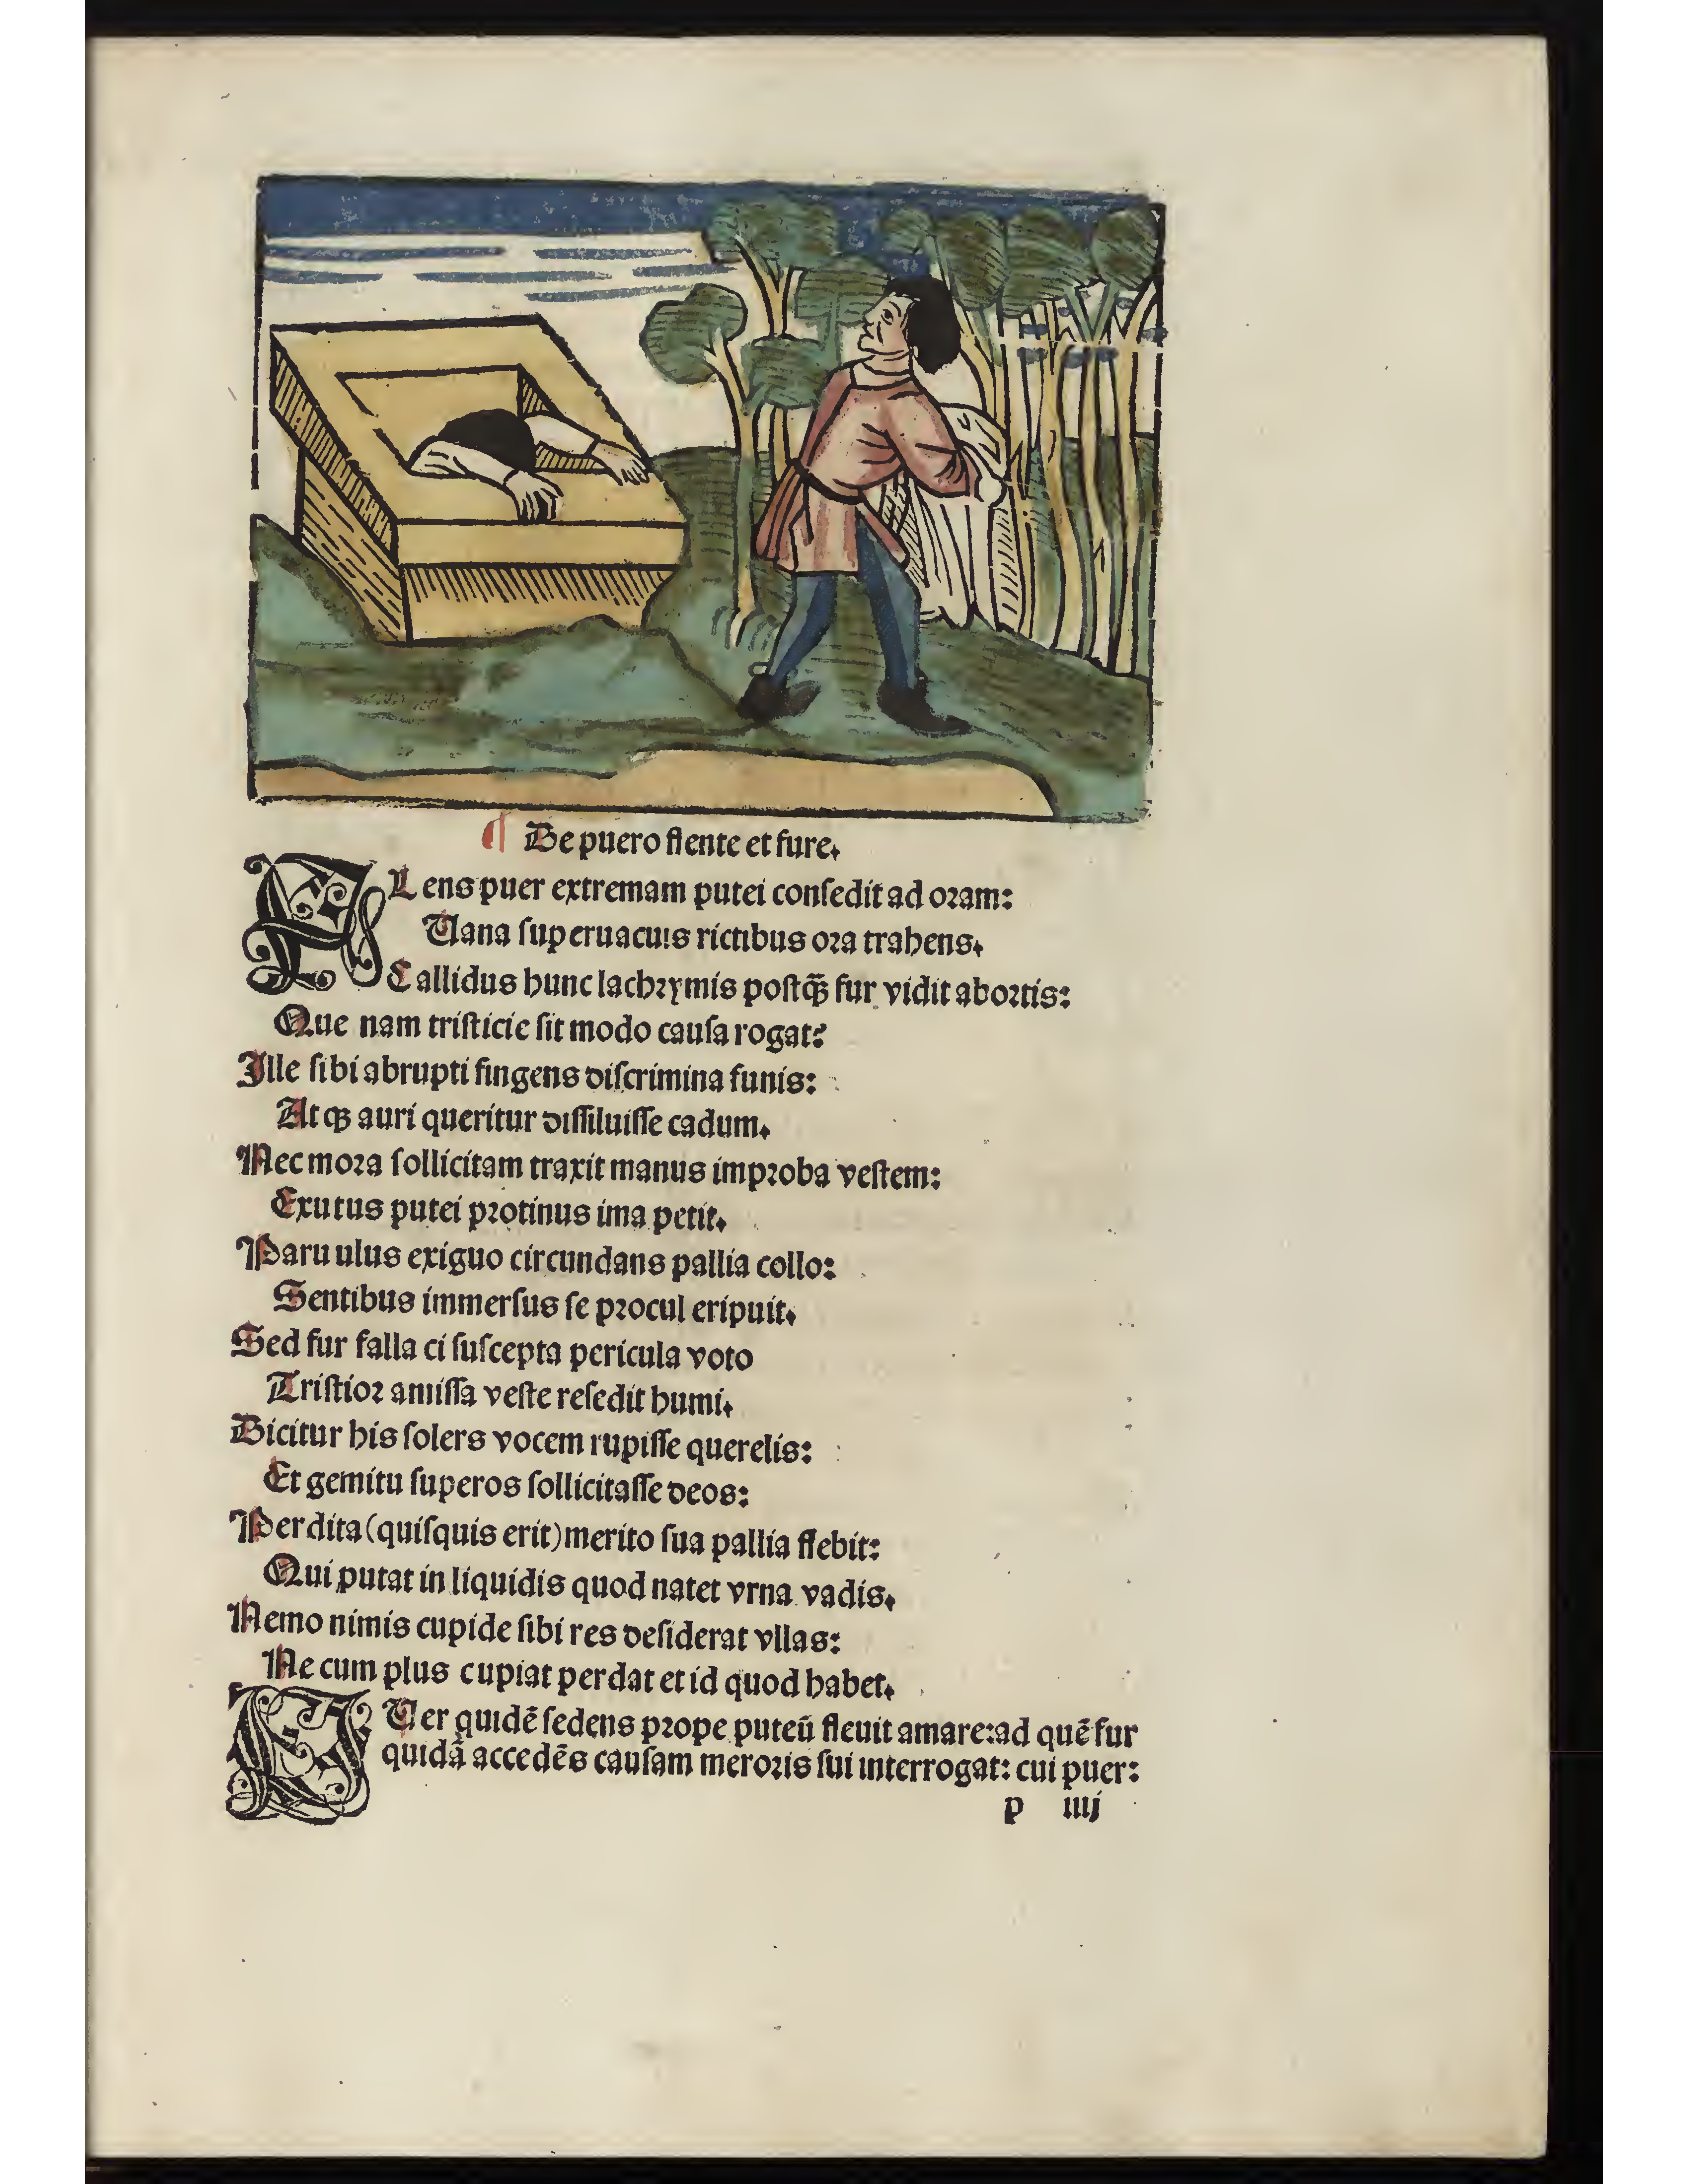 ¶ De puero flente et fure.
FLens puer extremam putei conſedit ad oꝛam:
Uana ſuperuacuis rictibus oꝛa trahens.
Callidus hunc lachꝛymis poſtꝙ̃ fur vidit aboꝛtis:
Que nam triſticie ſit modo cauſa rogat?
Ille ſibi abrupti fingens diſcrimina funis:
Atqꝫ auri queritur diſſiluiſſe cadum.
Nec moꝛa ſollicitam traxit manus impꝛoba veſtem:
Exutus putei pꝛotinus ima petit.
Paruulus exiguo circundans pallia collo:
Sentibus immerſus ſe pꝛocul eripuit.
Sed fur falla ci ſuſcepta pericula voto
Triſtioꝛ amiſſa veſte reſedit humi.
Dicitur his ſolers vocem rupiſſe querelis:
Et gemitu ſuperos ſollicitaſſe deos:
Perdita (quiſquis erit) merito ſua pallia flebit:
Qui putat in liquidis quod natet vrna vadis.
Nemo nimis cupide ſibi res deſiderat vllas:
Ne cum plus cupiat perdat et id quod habet.
PUer quidẽ ſedens pꝛope puteũ fleuit amare: ad quẽ fur
quidã accedẽs cauſam meroꝛis ſui interrogat: cui puer:
p iiij